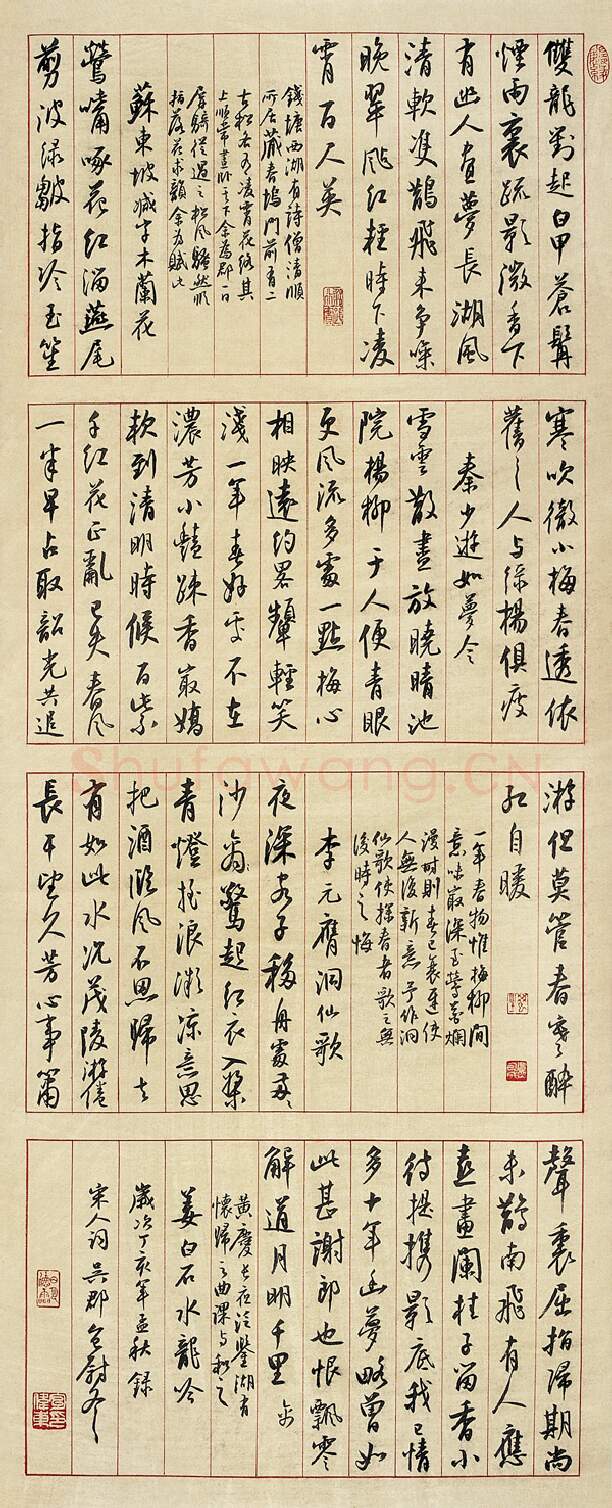 雙龍對起白甲蒼髯
煙雨裏疏影微香下
有幽人晝夢長湖風
清軟雙鵲飛來爭噪
晚翠颭紅輕時下凌
霄百尺英
錢塘西湖有詩僧清順
所居藏春塢門前有二
古松各有凌霄花絡其
上順常晝臥其下余為郡一日
屏騎從過之松風騷然順
指落花求韻余為賦此
蘇東坡減字木蘭花
鶯嘴啄花紅溜燕尾
剪波綠皺指冷玉笙
寒吹徹小梅春透依
舊〻人與綠楊俱瘦
秦少遊如夢令
雪雲散盡放曉晴池
院楊柳于人便青眼
更風流多處一點梅心
相映遠約略顰輕笑
淺一年春好處不在
濃芳小豔疎香最嬌
軟到清明時候百紫
千紅花正亂已失春風
一半早占取韶光共追
游但莫管春寒醉
紅自暖
一年春物惟梅柳間
意味最深至鶯花爛
漫時則春已衰遲使
人無復新意予作洞
仙歌使探春者歌之無
後時之悔
李元膺洞仙歌
夜深客子移舟處兩〻
沙禽驚起紅衣入槳
青燈搖浪微涼意思
把酒臨風不思歸去
有如此水況茂陵游倦
長干望久芳心事簫
聲裏屈指歸期尚
未鵲南飛有人應
喜畫闌桂子留香小
待提攜影底我已情
多十年幽夢略曾如
此甚謝郎也恨飄零
解道月明千里
黃慶長夜泛鑒湖有
懷歸之曲課與和之
姜白石水龍吟
歲次丁亥年孟秋錄
宋人詞吳郡
Shufawang.CN